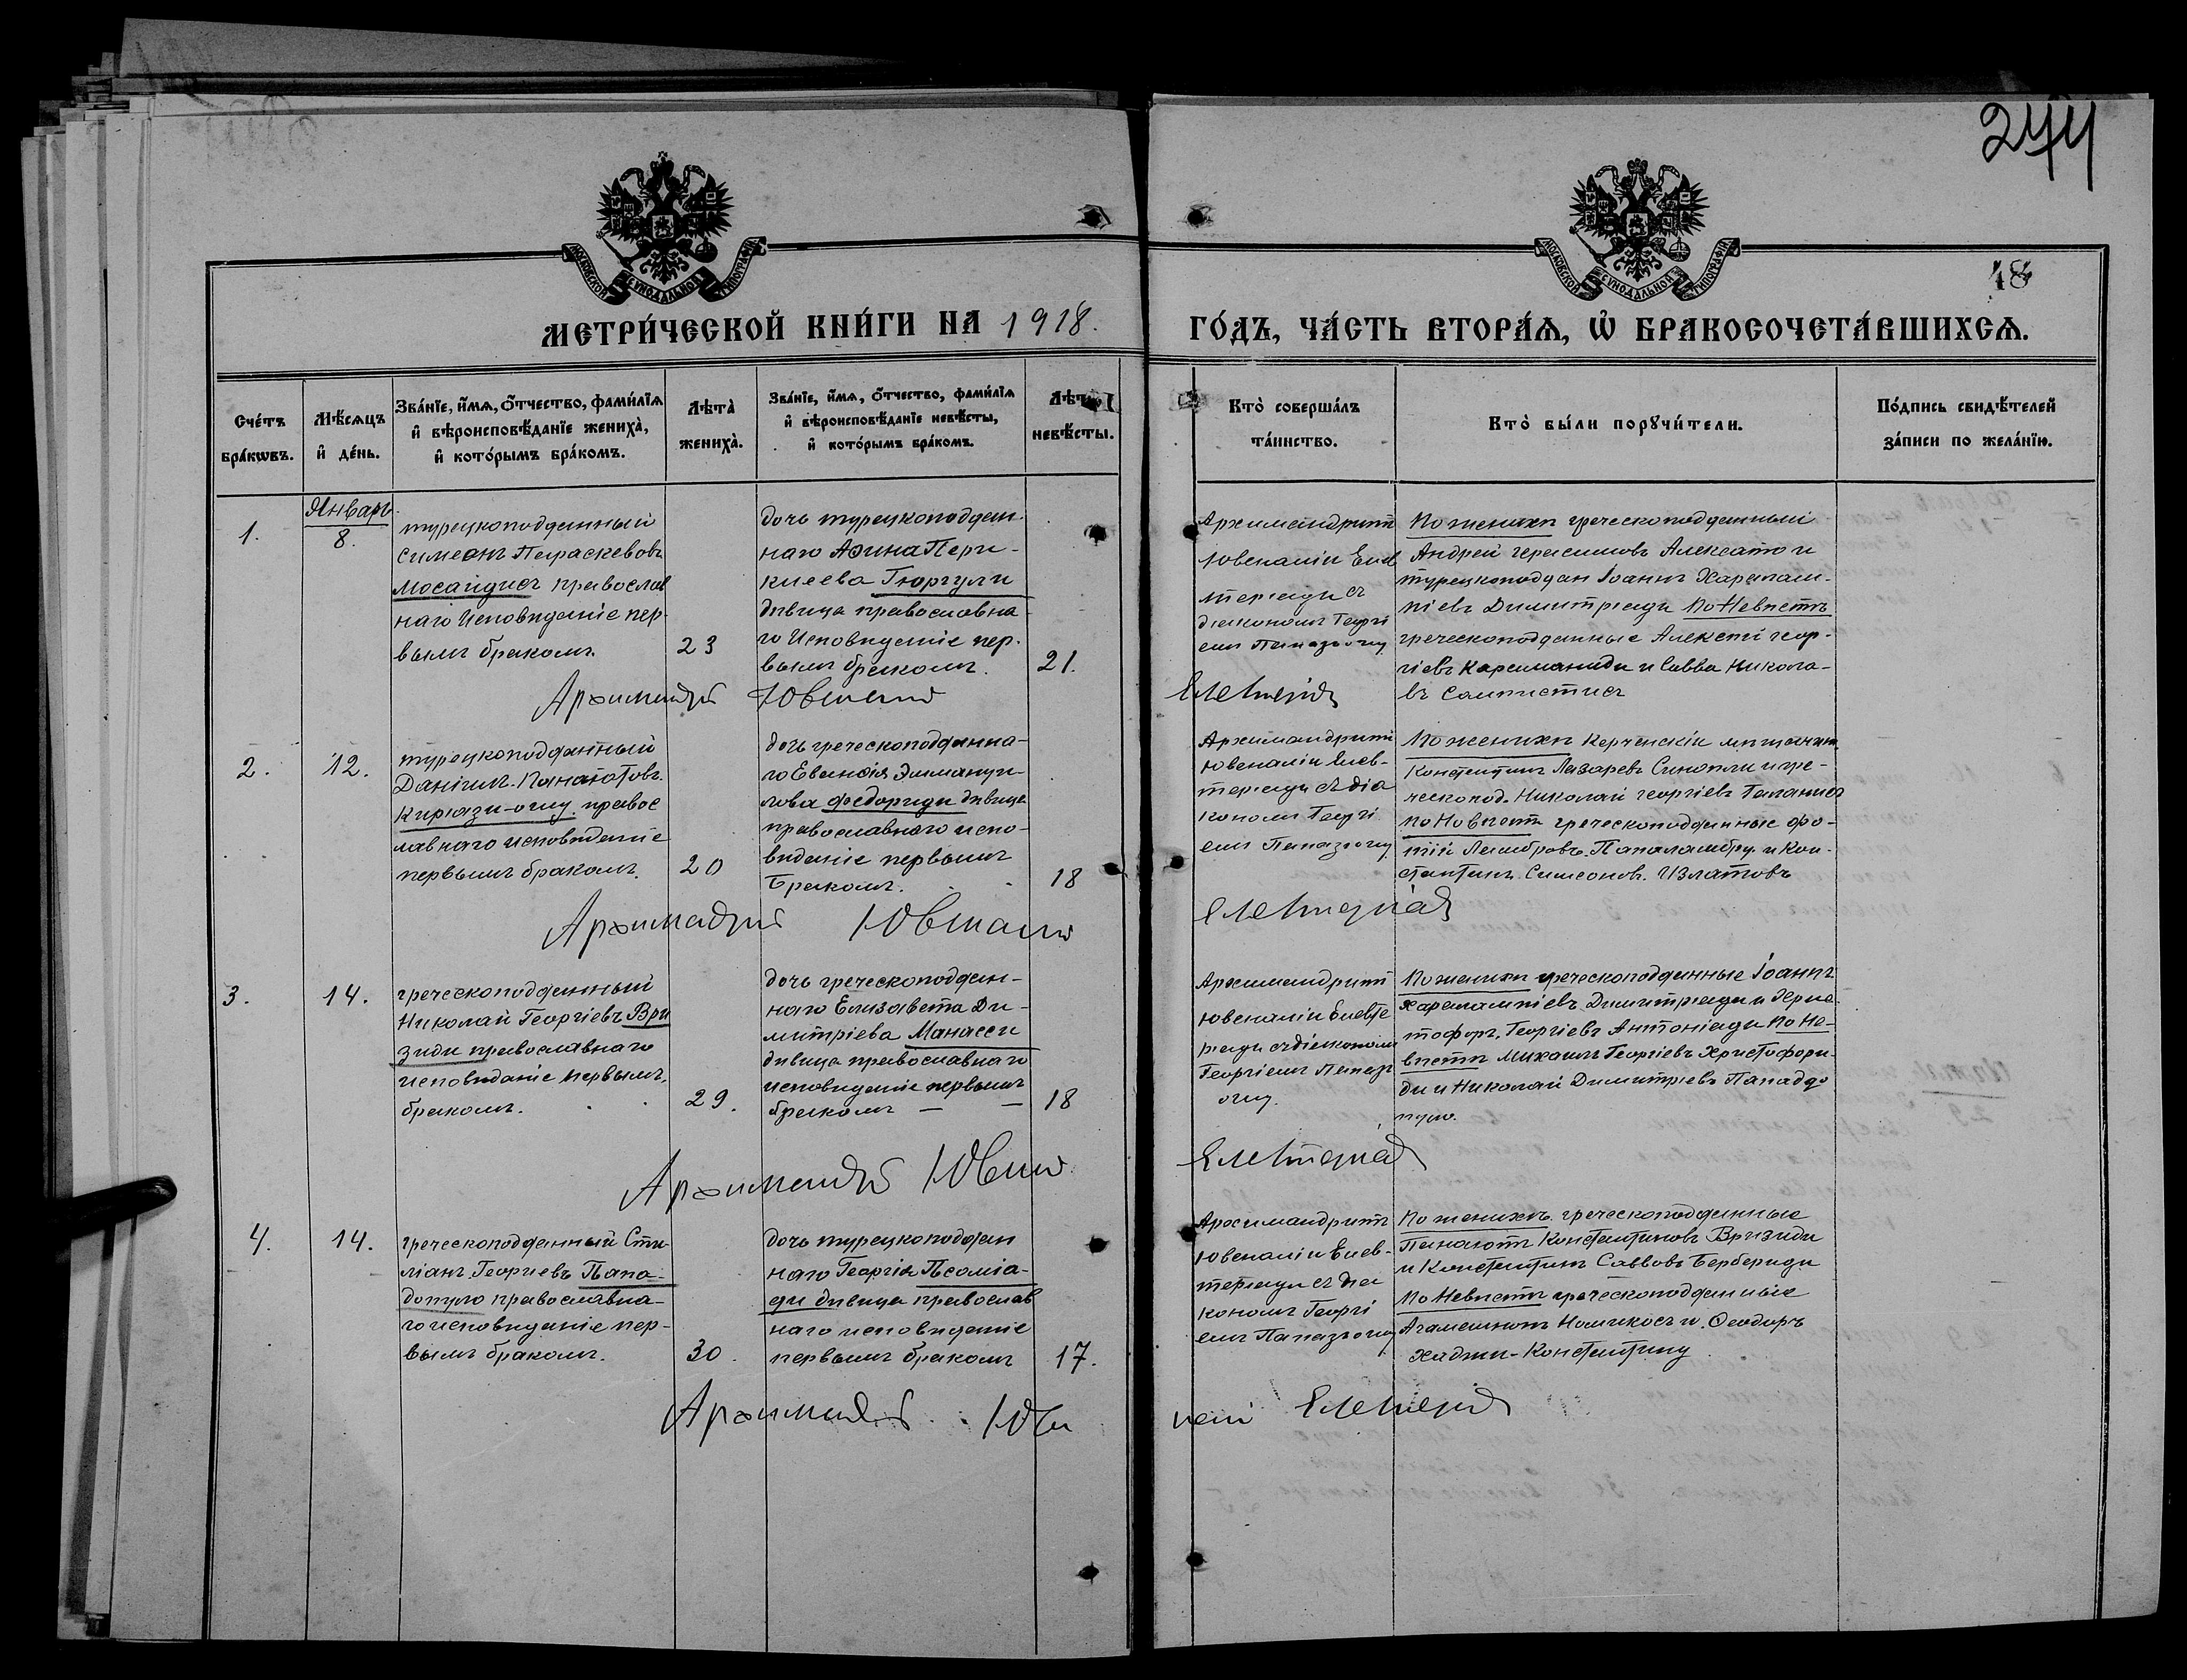 244
МОСКОВСКОЙ СѴНОДАЛЬНОЙ ТИПОГРАФІИ
МОСКОВСКОЙ СѴНОДАЛЬНОЙ ТИПОГРАФІИ
18
МЕТРИ́ЧЕСКОЙ КНИ́ГИ НА 1918.
ГО́ДЪ, ЧА́СТЬ ВТОРА́Ѧ, Ѡ БРАКОСОЧЕТА́ВШИХСѦ.
Сче́тъ
бра́кѡвъ.
Мѣ́сѧцъ
и҆ де́нь.
Зва́нїе, и҆́мѧ, ѻ҆́тчество, фами́лїѧ
и҆ вѣроисповѣ́данїе жениха̀,
и҆ кото́рымъ бра́комъ.
Лѣта̀
жениха̀.
Зва́нїе, и҆́мѧ, ѻ҆́тчество, фами́лїѧ
и҆ вѣроисповѣ́данїе невѣ́сты,
и҆ кото́рымъ бра́комъ.
невѣ́сты.
Кто̀ соверша́лъ
та́инство.
Кто̀ бы́ли порꙋчи́тели.
По́дпись свидѣ́телей
за́писи по жела́нїю.
1.
Январь
8.
турецкоподданный
Симеонъ Параскевовъ
Мосаидисъ православ
наго исповѣданіе пер-
вымъ бракомъ.
23
дочь турецкоподдан
наго Афина Пери-
клеева Гюргули
дѣвица православна
го исповѣданіе пер.
вымъ бракомъ.
21.
Архимандритъ
Ювеналій Елев
теріади съ
діакономъ Георгі
емъ Папазъоглу
По женихѣ греческоподданный
Андрей Герасимовъ Алексато и
турецкоподдан Іоаннъ Харалам-
піевъ Димитріади По Невѣстѣ
греческоподданные Алексѣй Геор-
гіевъ Караманиди и Савва Никола-
въ
Архимандрит Ювеналій
Елевтеріади
2.
12.
турецкоподданный
Даніилъ Панаіотовъ
Киріази-оглу. правос
лавнаго исповѣданіе
первымъ бракомъ.
20
дочь греческоподданна-
го Евангія Эммануи-
лова Федориди дѣвица
православнаго испо-
вѣданіе первымъ
бракомъ.
18
Архимандритъ
Ювеналій Елев-
теріади съ діа
кономъ Георгі
емъ Папазъоглу
По женихѣ Керченскій мѣщанинъ
Константинъ Лазаревъ Синопли и гре-
ческопод. Николай Георгіевъ
По Невѣстѣ греческоподданные Фо-
тій Ламбровъ Папаламбру и Кон-
стантинъ Симеонов. Излатовъ
Архимандрит Ювеналій
Елевтеріади
3.
14.
греческоподданный
Николай Георгіевъ Ври
зиди православнаго
исповѣданіе первымъ
бракомъ.
29.
дочь греческоподдан-
наго Елизавета Ди-
митріева Манасси
дѣвица православнаго
исповѣданіе первымъ
бракомъ
18
Архимандритъ
Ювеналій Елевте
ріади съ діакономъ
Георгіемъ Папазъ
оглу.
По женихѣ греческоподданные Іоаннъ
Харалампіевъ Димитріади и Хрис
тофоръ Георгіевъ Антоніади По Не-
вѣстѣ Михаилъ Георгіевъ Христофори-
ди и Николай Димитріевъ Пападо
пуло.
Архимандрит Ювеналій
Елевтеріади
4.
14.
греческоподданный Сти-
ліанъ Георгіевъ Папа-
допуло православна-
го исповѣданіе пер-
вымъ бракомъ.
30.
дочь турецкоподдан
наго Георгія Псоміа-
ди дѣвица православ
наго исповѣданіе
первымъ бракомъ
17.
Архимандритъ
Ювеналій Елев-
теріади съ діа
кономъ Георгі
емъ Папазъоглу
По женихѣ греческоподданные
Панаіотъ Константиновъ Вризиди
и Константинъ Саввовъ Бербериди
По Невѣстѣ греческоподданные
Агамемнонъ Номикосъ и Ѳеодоръ
Хаджи-Константину
Архимандрит Ювеналій
Елевтеріади